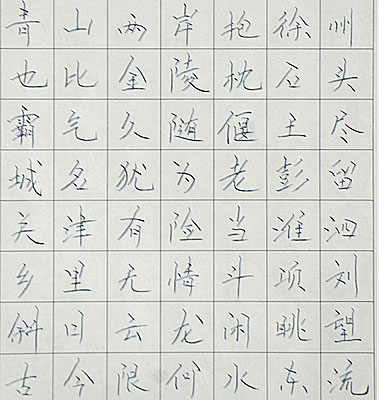 青山两岸抱徐州
也比金陵枕石头
霸气久随偃王尽
城名犹为老彭留
关津有险当淮泗
乡里无情斗项刘
斜日云龙闲眺望
古今限何水东流